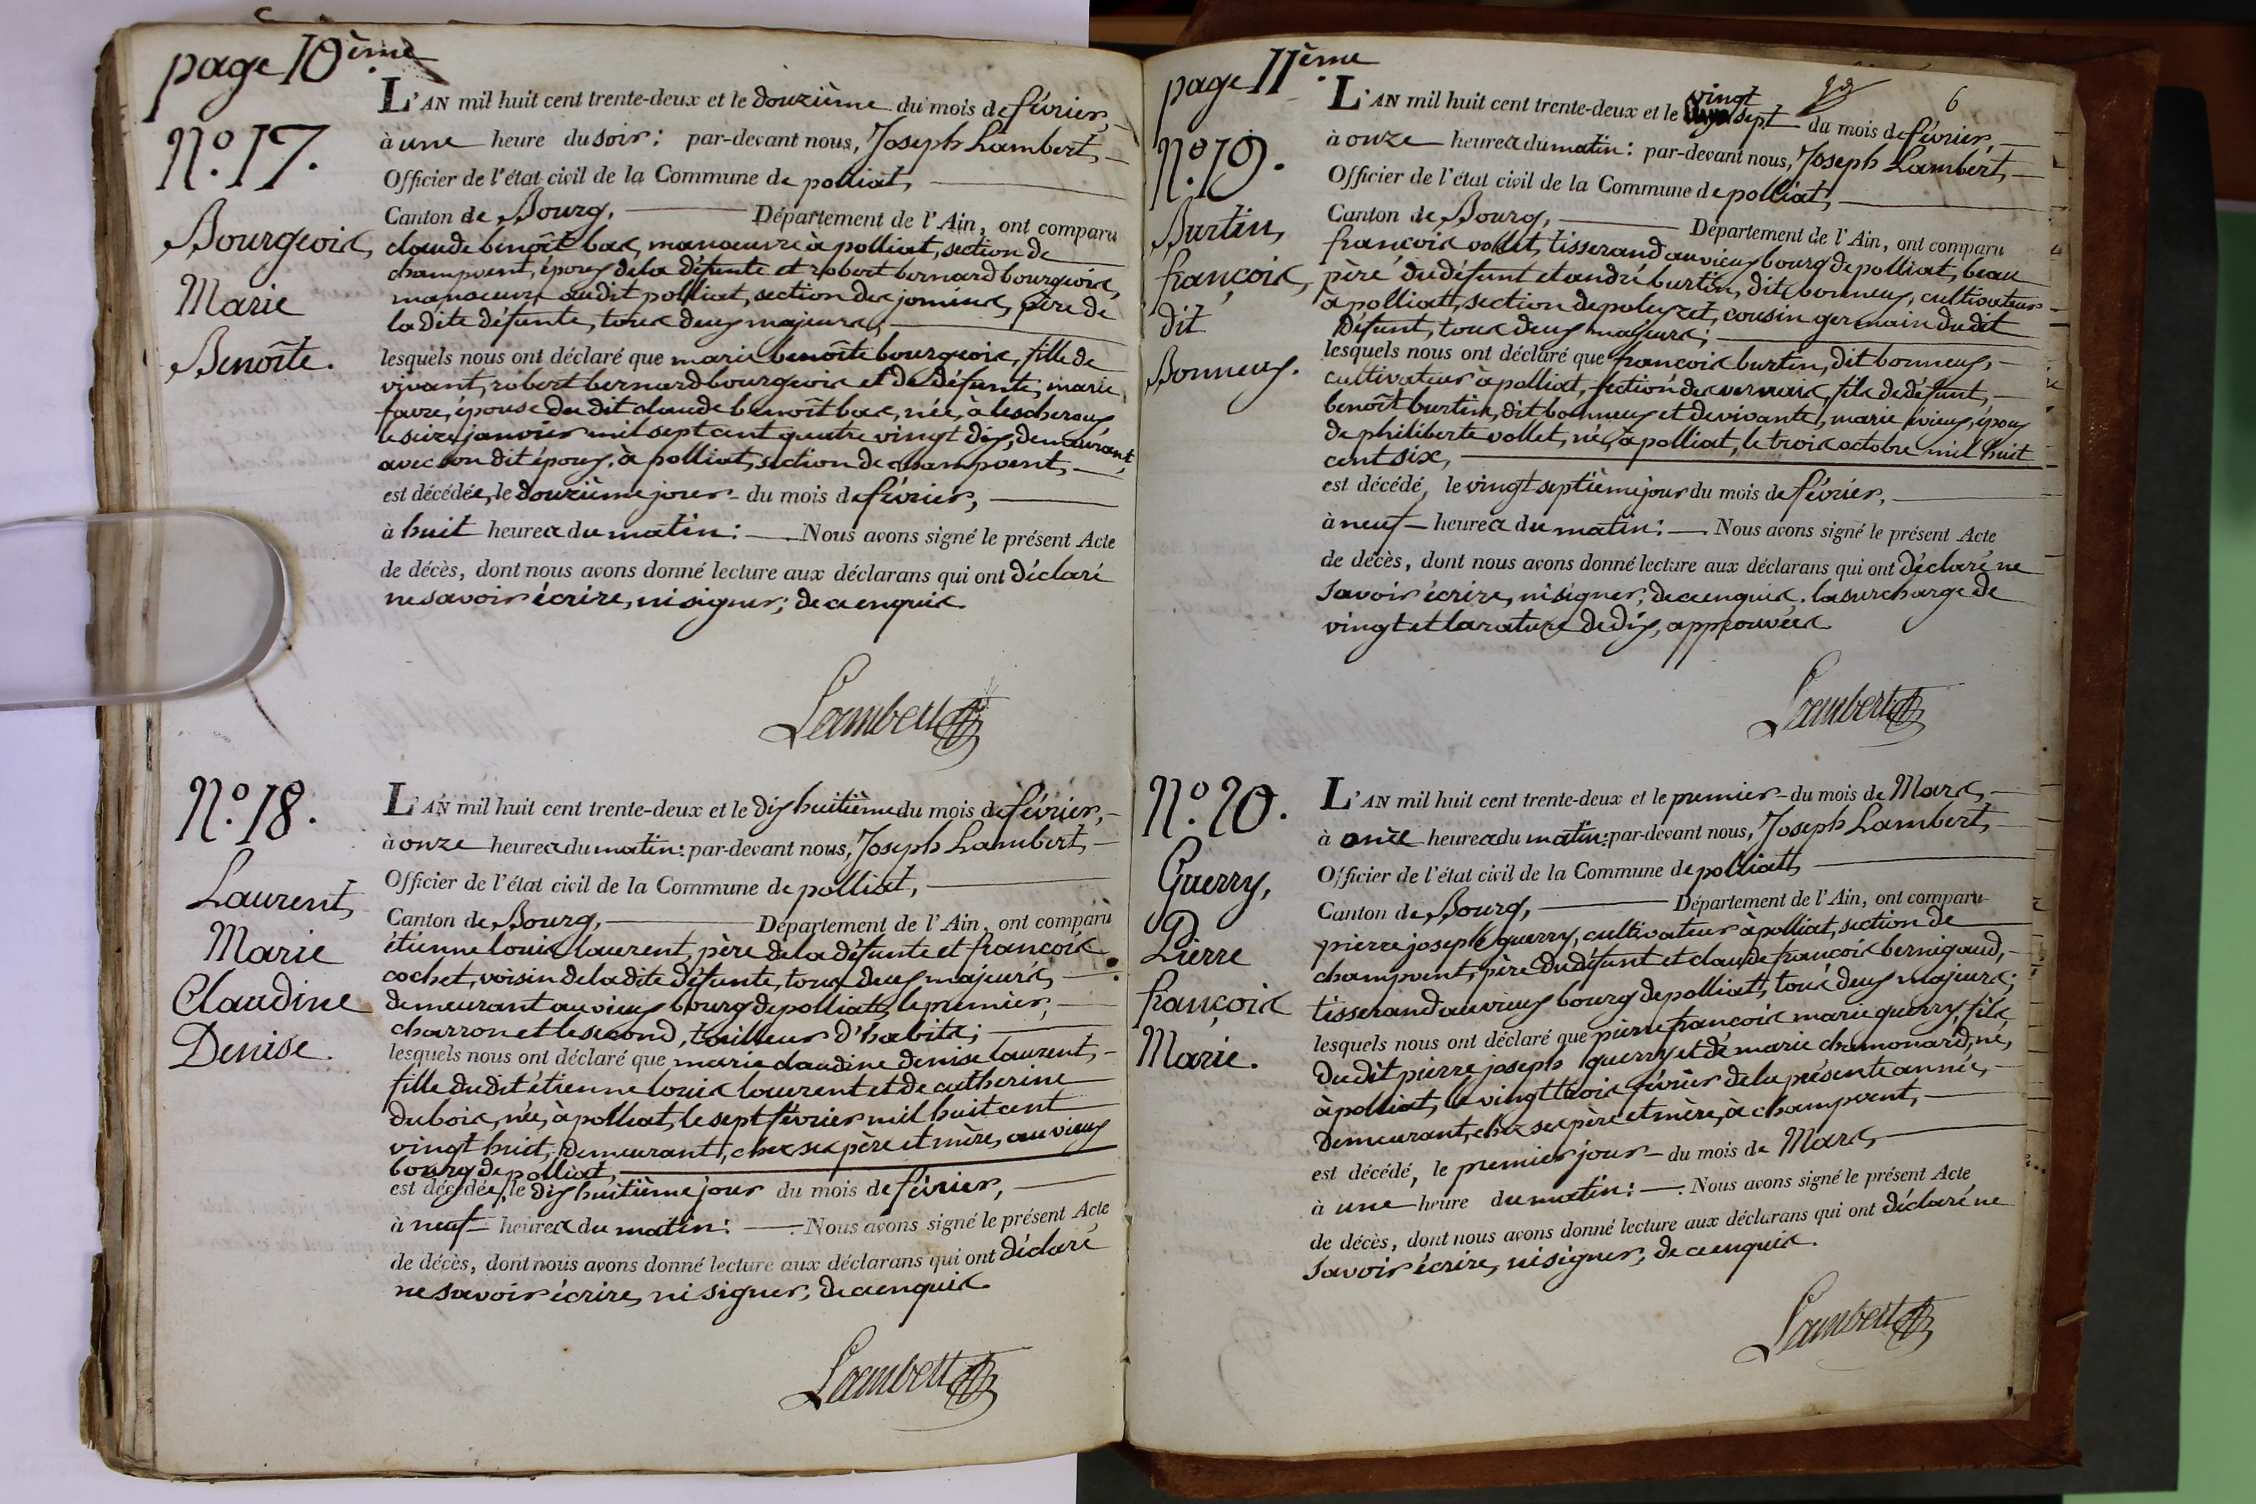 page 10ème
N.º 17.
Bourgeois,
Marie
Benoîte.
L'AN mil huit cent trente-deux et le douzième du mois de février,
à une heure du soir: par-devant nous, Joseph Lambert,
Officier de l'état civil de la Commune de polliat,
Canton de Bourg, Département de l'Ain, ont comparu
claude benoît bas, manoeuvre à polliat, section de
champvent, époux de la défunte et robert bernard bourgeois,
manoeuvre audit polliat, section des jomins, père de
la dite défunte, tous deux majeurs,
lesquels nous ont déclaré que marie benoîte bourgeois, fille de
vivant, robert bernard bourgeois et de défunte, marie
favre, épouse du dit claude benoît bas, née, à lescheroux
le seize janvier mil sept cent quatre vingt dix, demeurant,
avec son dit époux, à polliat, section de champvent,
est décédée, le douzième jour du mois de février,
à huit heures du matin: Nous avons signé le présent Acte
de décès, dont nous avons donné lecture aux déclarans qui ont déclaré
ne savoir écrire, ni signer, de ce enquis.
Lambert
N.º 18.
Laurent,
Marie
Claudine
Denise.
L'AN mil huit cent trente-deux et le dix huitième du mois de février,
à onze heures du matin: par-devant nous, Joseph Lambert,
Officier de l'état civil de la Commune de polliat,
Canton de Bourg, Département de l'Ain, ont comparu
étienne louis laurent, père de la défunte et françois
cochet, voisin de la dite défunte, tous deux majeurs,
demeurant au vieux bourg de polliat, le premier,
charron et le second, tailleur d'habits;
lesquels nous ont déclaré que marie claudine denise laurent,
fille dudit étienne louis laurent et de catherine
dubois, née, à polliat, le sept février mil huit cent
vingt huit, demeurant, chez ses père et mère, au vieux
bourg de polliat,
est décédée, le dix huitième jour du mois de février,
à neuf heures du matin: Nous avons signé le présent Acte
de décès, dont nous avons donné lecture aux déclarans qui ont déclaré
ne savoir écrire, ni signer, de ce enquis.
Lambert
page 11ème
6
N.º 19.
Burtin,
françois,
dit
Bonneux.
L'AN mil huit cent trente-deux et le vingt sept du mois de février,
à onze heures du matin: par-devant nous, Joseph Lambert,
Officier de l'état civil de la Commune de polliat,
Canton de Bourg, Département de l'Ain, ont comparu
françois vollet, tisserand au vieux bourg de polliat, beau
père du défunt et andré burtin, dit bonneux, cultivateur
à polliat, section de polyzet, cousin germain du dit
défunt, tous deux majeurs;
lesquels nous ont déclaré que françois burtin, dit bonneux,
cultivateur à polliat, section des vernais, fils de défunt,
benoît burtin, dit bonneux et de vivante, marie vieux, époux
de philiberte vollet, né, à polliat, le trois octobre mil huit
cent six,
est décédé, le vingt septième jour du mois de février,
à neuf heures du matin: Nous avons signé le présent Acte
de décès, dont nous avons donné lecture aux déclarans qui ont déclaré ne
savoir écrire, ni signer, de ce enquis. la surcharge de
vingt et la rature de dix, approuvées.
Lambert
N.º 20.
Guerry,
Pierre
françois
Marie.
L'AN mil huit cent trente-deux et le premier du mois de Mars,
à onze heures du matin: par-devant nous, Joseph Lambert,
Officier de l'état civil de la Commune de polliat,
Canton de Bourg, Département de l'Ain, ont comparu
pierre joseph guerry, cultivateur à polliat, section de
champvent, père du défunt et claude françois bernigaud,
tisserand au vieux bourg de polliat, tous deux majeurs;
lesquels nous ont déclaré que pierre françois marie guerry, fils
dudit pierre joseph guerry et de marie chamonard, né,
à polliat, le vingt trois février de la présente année,
demeurant, chez ses père et mère, à champvent,
est décédé, le premier jour du mois de Mars,
à une heure du matin: Nous avons signé le présent Acte
de décès, dont nous avons donné lecture aux déclarans qui ont déclaré ne
savoir écrire, ni signer, de ce enquis.
Lambert